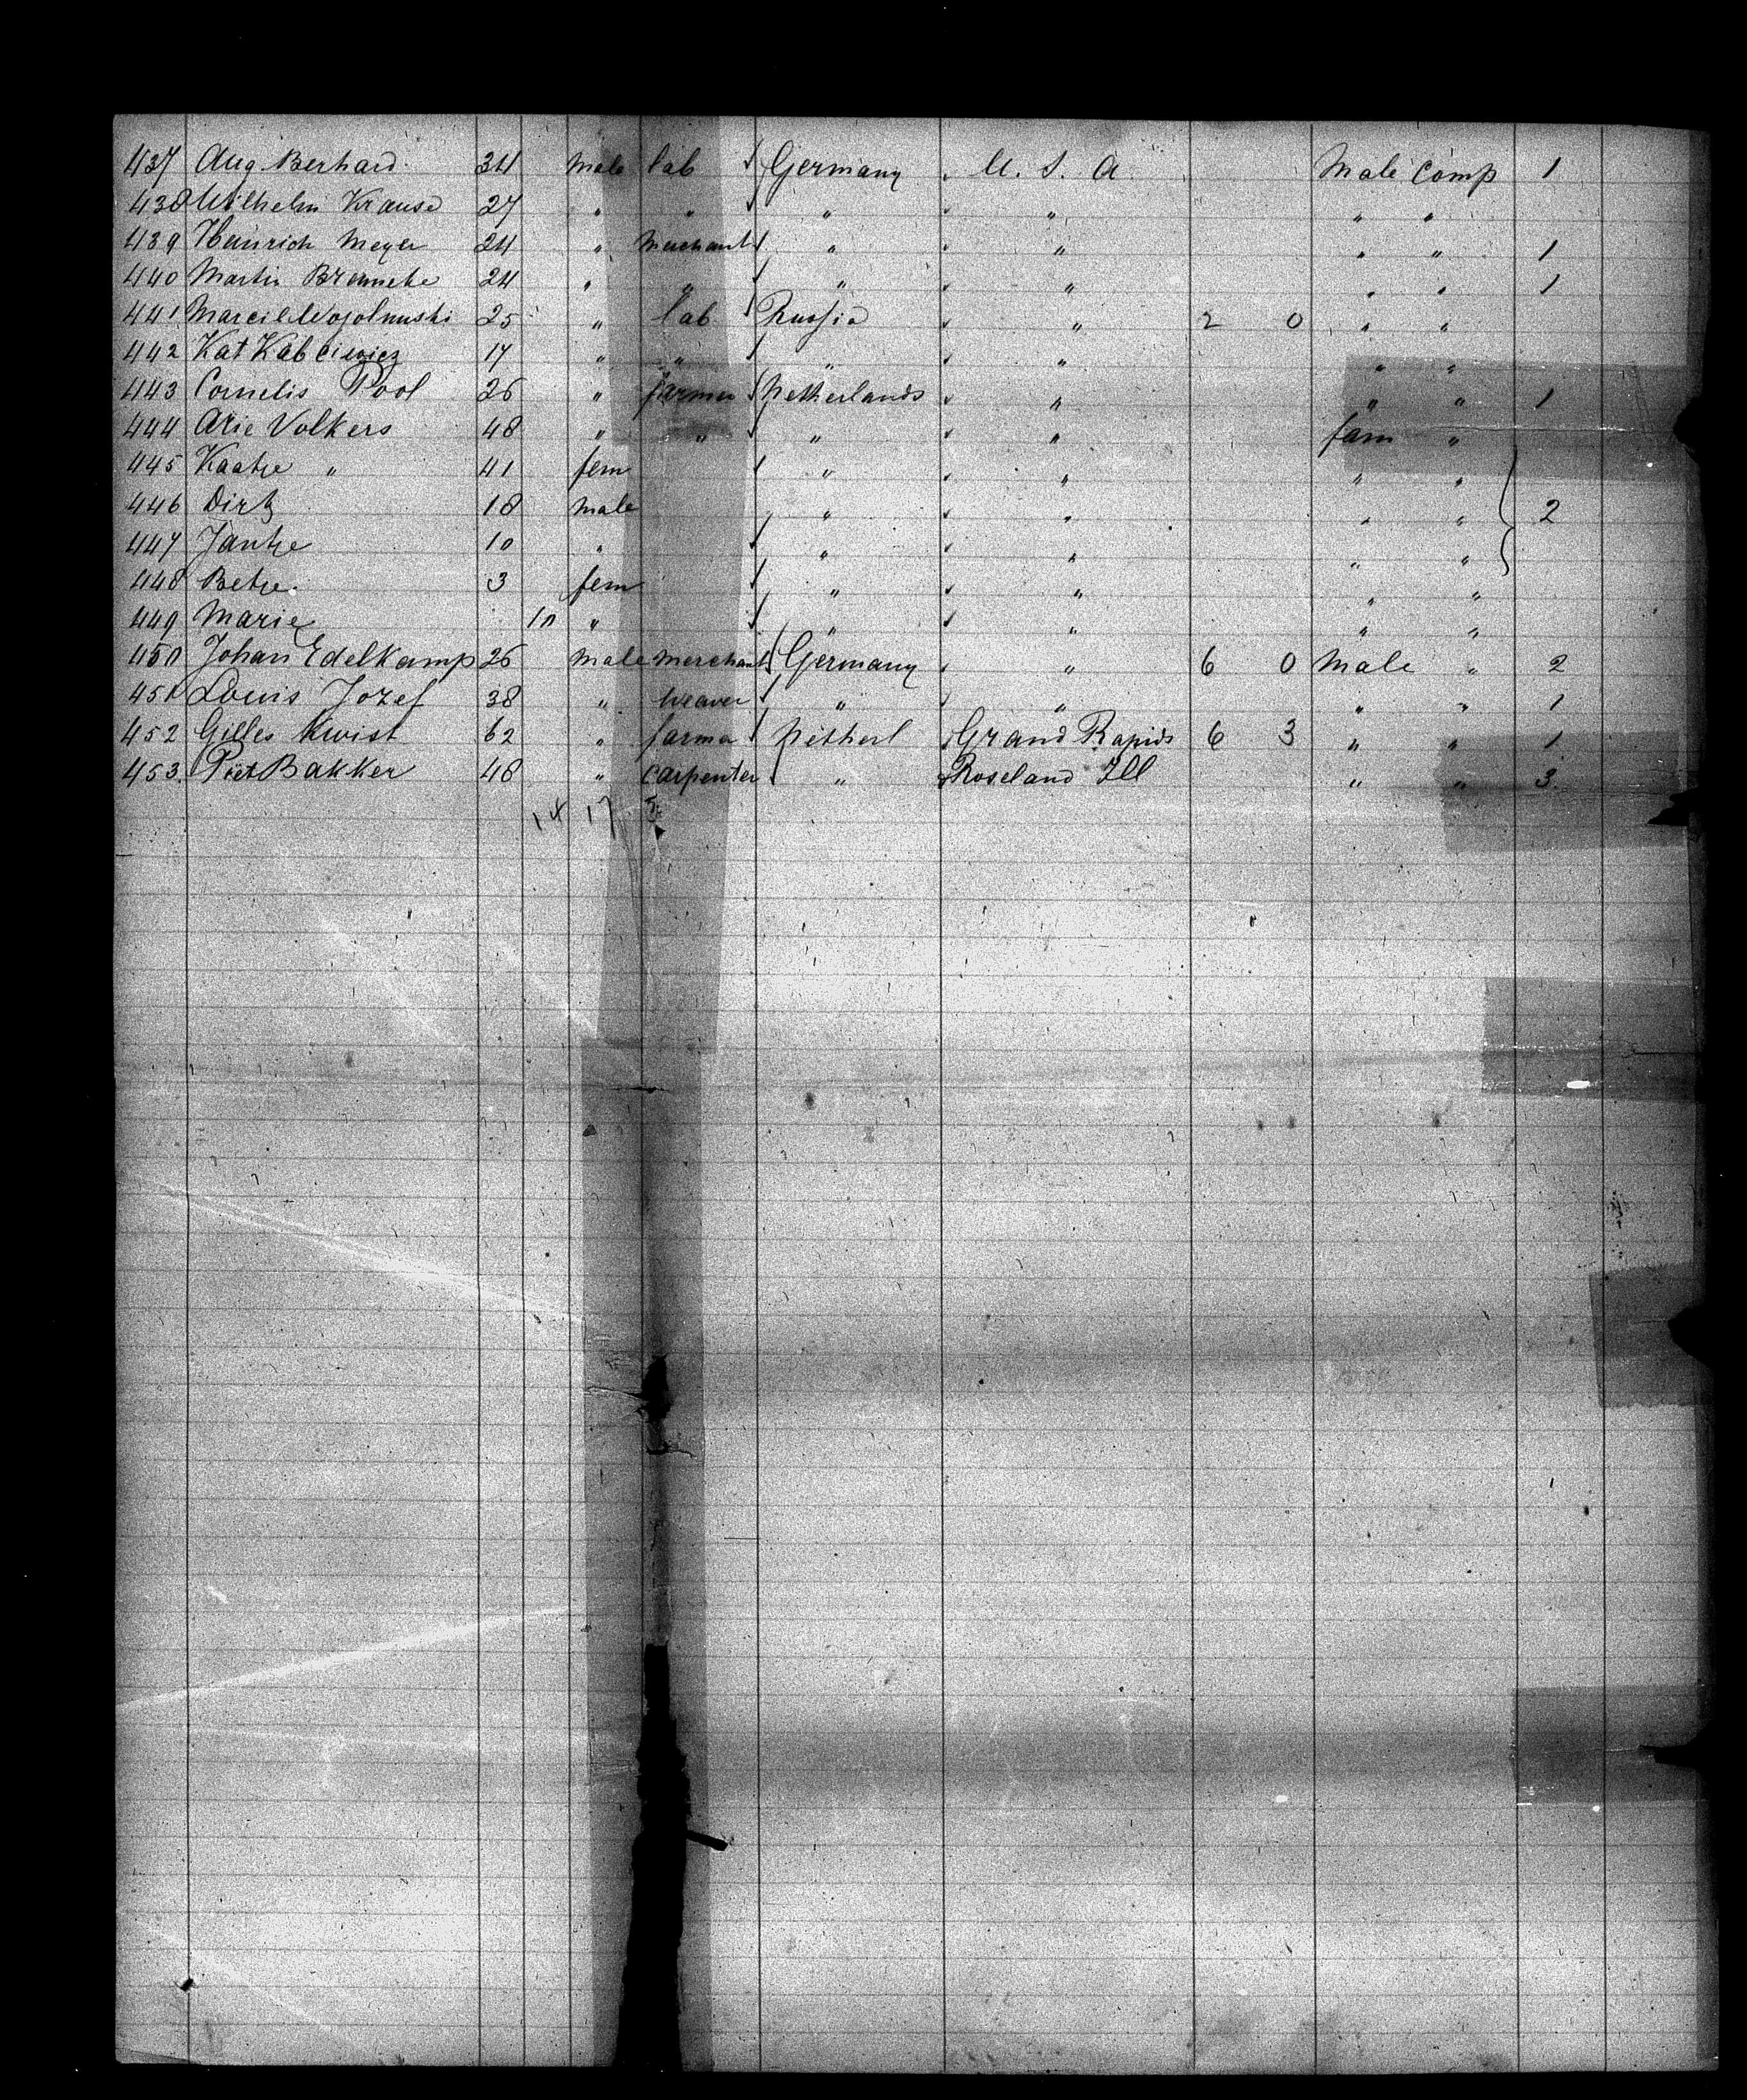 437 Aug Berhard 34 male lab Germany U. S. A. Male Comp 1
438 Wilhelm Krause 27 " " " " " "
439 Heinrich Meyer 24 " merchant " " " " 1
440 Martin 24 " " " " " " 1
441 25 " lab Russia " 2 0 " "
442 Kat 17 " " " " " "
443 Cornelis Pool 26 " farmer Netherlands " " " 1
444 Arie Volkers 48 " " " " fam "
445 Kaatje " 41 fem " " " "
446 Dirk 18 male " " " " 2
447 Jantje 10 " " " " "
448 Betje 3 fem " " " "
449 Marie 10 " " " " "
450 Johan Edelkamp 26 male merchant Germany " 6 0 Male " 2
451 Louis Jozef 38 " weaver " " " " 1
452 Gilles Kwist 62 " farmer Netherl Grand Rapids 6 3 " " 1
453. Piet Bakker 48 " carpenter " Roseland Ill " " 3.
17